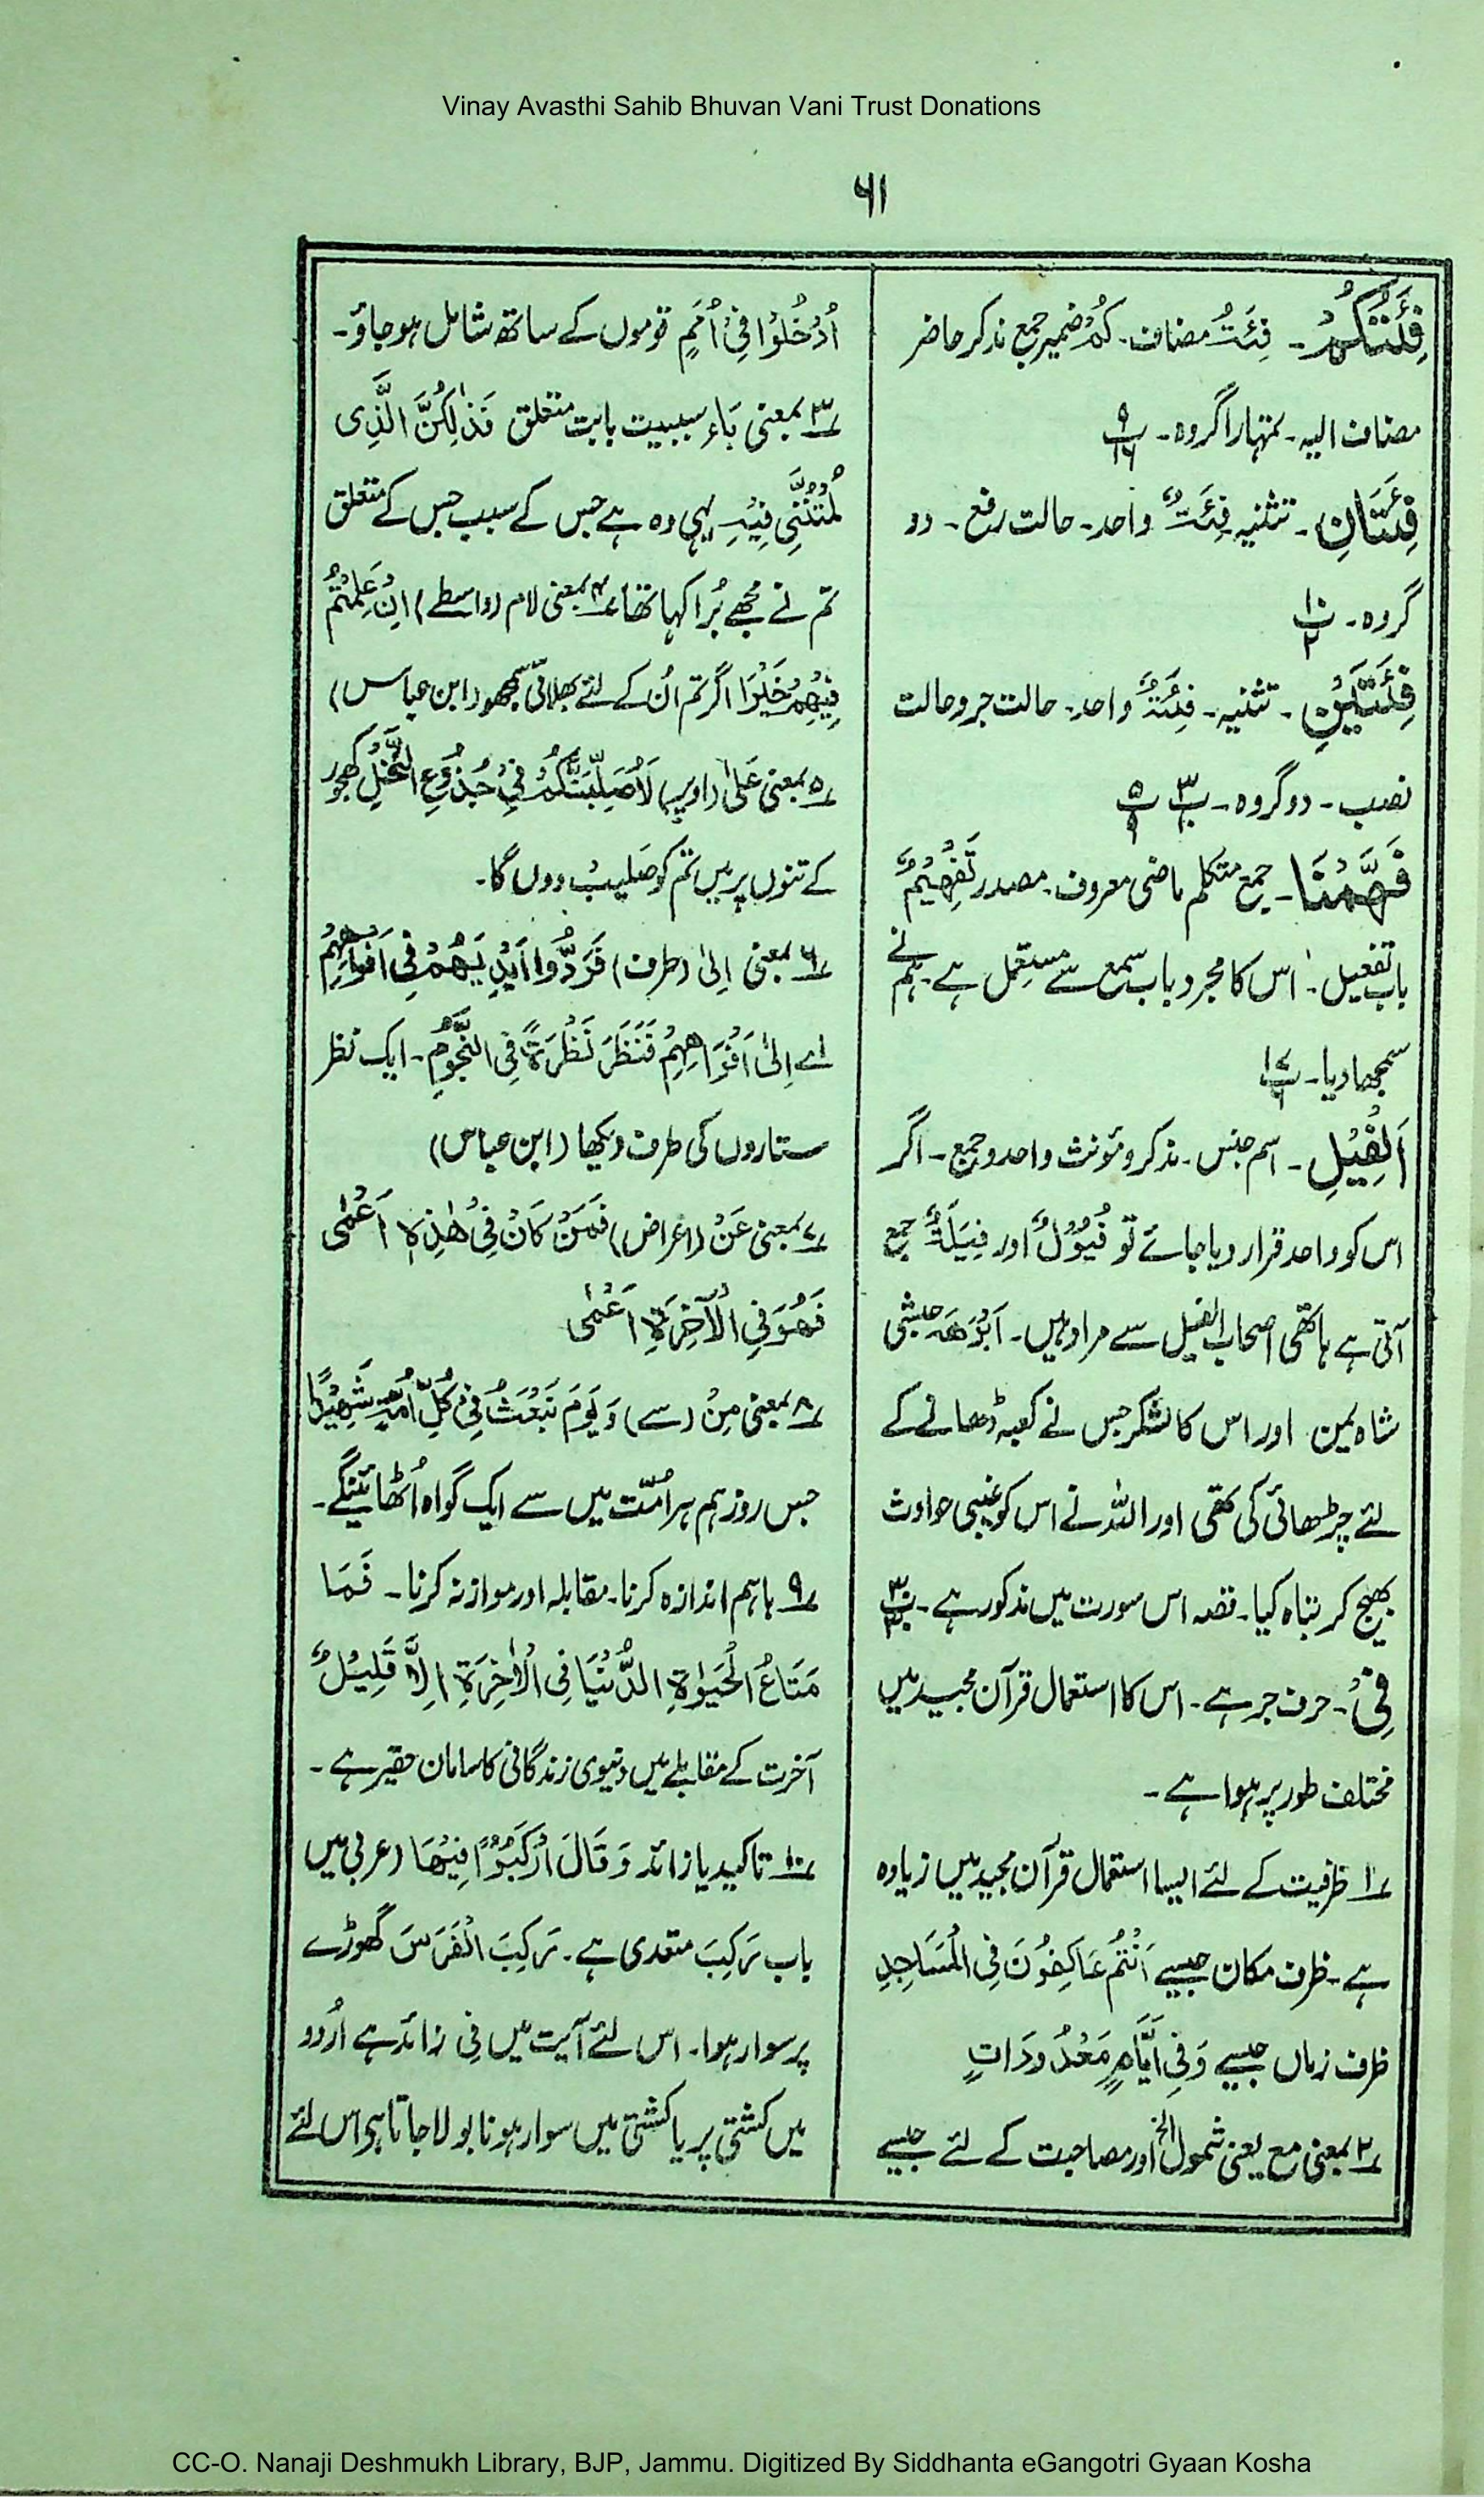 Vinay Avasthi Sahib Bhuvan Vani Trust Donations
۶۱
فِئَتُكُمْ۔ فِئَتُ مضاف۔ کُمْ ضمیر جمع مذکر حاضر
مضاف الیہ۔ تمہارا گروہ۔ پ۹ ۱۶
فِئَتَانِ۔ تثنیہ فِئَتٌ واحد۔ حالت رفع۔ دو
گروہ۔ پ۱۰ ۲
فِئَتَيْنِ۔ تثنیہ۔ فِئَۃٌ واحد۔ حالت جر و حالت
نصب۔ دو گروہ۔ پ۳ ۱۰ پ۵ ۹
فَهَّمْنَا۔ جمع متکلم ماضی معروف۔ مصدر تَفْهِيْمٌ
باب تفعیل۔ اس کا مجرد باب سمع سے مستعمل ہے۔ ہم نے
سمجھا دیا۔ پ۱۷ ۶
اَلْفِيْلِ۔ اسم جنس۔ مذکر و مؤنث واحد و جمع۔ اگر
اس کو واحد قرار دیا جائے تو فُيُوْلٌ اور فِيَلَةٌ جمع
آتی ہے ہاتھی اصحاب الفیل سے مراد ہیں۔ اَبْرَهَہ حبشی
شاہ یمن اور اس کا لشکر جس نے کعبہ ڈھانے کے
لئے چڑھائی کی تھی اور اللہ نے اس کو غیبی حوادث
بھیج کر تباہ کیا۔ قصہ اس سورت میں مذکور ہے۔ پ۳۰ ۳۰
فِيْ۔ حرف جر ہے۔ اس کا استعمال قرآن مجید میں
مختلف طور پر ہوا ہے۔
۱؎ ظرفیت کے لئے ایسا استعمال قرآن مجید میں زیادہ
ہے۔ ظرف مکان جیسے اَنْتُمْ عَاكِفُوْنَ فِي الْمَسَاجِدِ
ظرف زماں جیسے وَفِيْ اَيَّامٍ مَعْدُودَاتٍ
۲؎ بمعنی مع یعنی شمول الخ اور مصاحبت کے لئے جیسے
اُدْخُلُوْا فِيْ اُمَمٍ قوموں کے ساتھ شامل ہو جاؤ۔
۳؎ بمعنی بَاء سببیت بابت متعلق فَذٰلِكُنَّ الَّذِی
لُمْتُنَّنِي فِيْهِ یہی وہ ہے جس کے سبب جس کے متعلق
تم نے مجھے بُرا کہا تھا ۴؎ بمعنی لام (واسطے) اِنْ عَلِمْتُمْ
فِيْهِمْ خَيْرًا اگر تم اُن کے لئے بھلائی سمجھو (ابن عباس)
۵؎ بمعنی عَلٰی (اوپر) لَاُصَلِّبَنَّكُمْ فِيْ جُذُوْعِ النَّخْلِ کھجور
کے تنوں پر میں تم کو صلیب دوں گا۔
۶؎ بمعنی اِلیٰ (طرف) فَرَدُّوا اَيْدِيَهُمْ فِي اَفْوَاهِهِمْ
اے اِلیٰ اَفْوَاهِهِمْ فَنَظَرَ نَظْرَةً فِي النُّجُوْمِ۔ ایک نظر
ستاروں کی طرف دیکھا (ابن عباس)
۷؎ بمعنی عَنْ (اعراض) فَمَنْ كَانَ فِيْ هٰذِهٖ اَعْمٰى
فَهُوَ فِي الْاٰخِرَةِ اَعْمٰى
۸؎ بمعنی مِنْ (سے) وَيَوْمَ نَبْعَثُ فِيْ كُلِّ اُمَّةٍ شَهِيْدًا
جس روز ہم ہر امّت میں سے ایک گواہ اُٹھائینگے۔
۹؎ باہم اندازہ کرنا۔ مقابلہ اور موازنہ کرنا۔ فَمَا
مَتَاعُ الْحَيٰوةِ الدُّنْيَا فِي الْاٰخِرَةِ اِلَّا قَلِيْلٌ
آخرت کے مقابلے میں دنیوی زندگانی کا سامان حقیر ہے۔
۱۰؎ تاکید یا زائد وَقَالَ ارْكَبُوْا فِيْهَا (عربی میں
باب رَكِبَ متعدی ہے۔ رَكِبَ الْفَرَسَ گھوڑے
پر سوار ہوا۔ اس لئے آیت میں فِی زائد ہے اُردو
میں کشتی پر یا کشتی میں سوار ہونا بولا جاتا ہے اس لئے
CC-O. Nanaji Deshmukh Library, BJP, Jammu. Digitized By Siddhanta eGangotri Gyaan Kosha